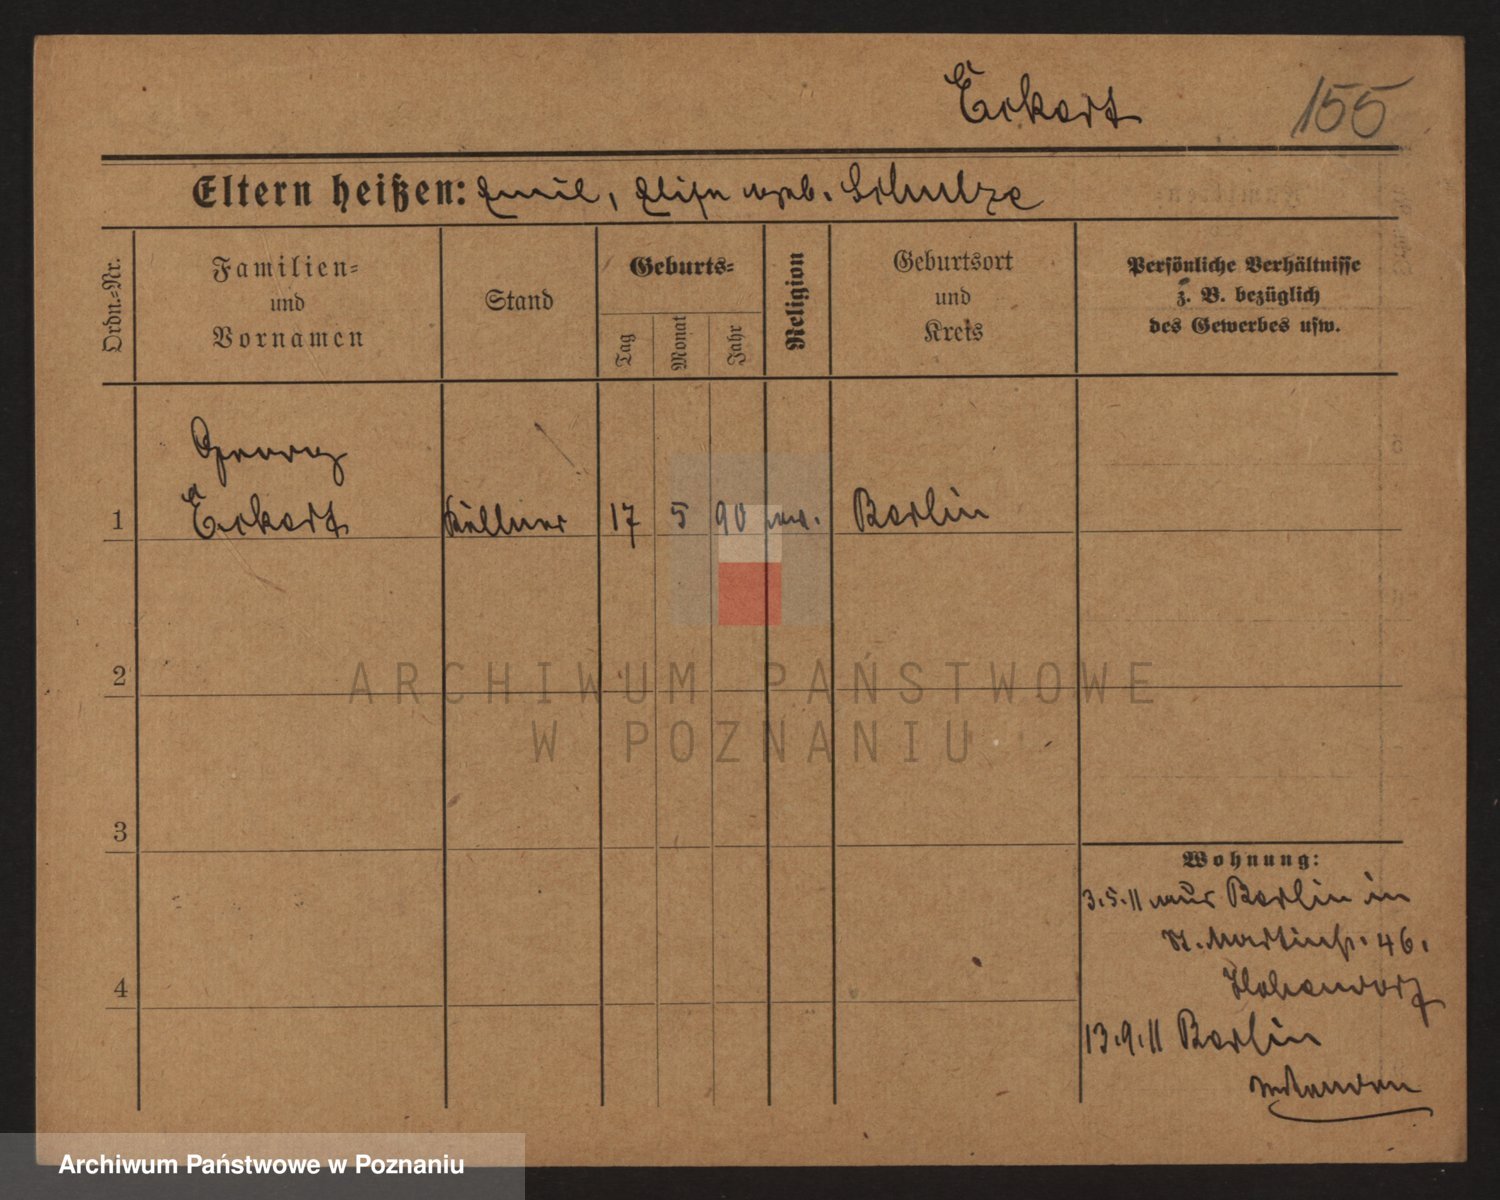 Eckert 155
Eltern heißen: Emil, Elise geb. Schulze
Ordn.-Nr.
Familien-
und
Vornamen
Stand
Geburts-
Tag
Monat
Jahr
Religion
Geburtsort
und
Kreis
Persönliche Verhältnisse
z. B. bezüglich
des Gewerbes usw.
Georg
1 Eckert Kellner 17 5 90 ev. Berlin
2
ARCHIWUM PAŃSTWOWE
W POZNANIU
3
Wohnung:
3.5.11 aus Berlin in
St. Martinstr. 46.
4
13.9.11 Berlin
Archiwum Państwowe w Poznaniu